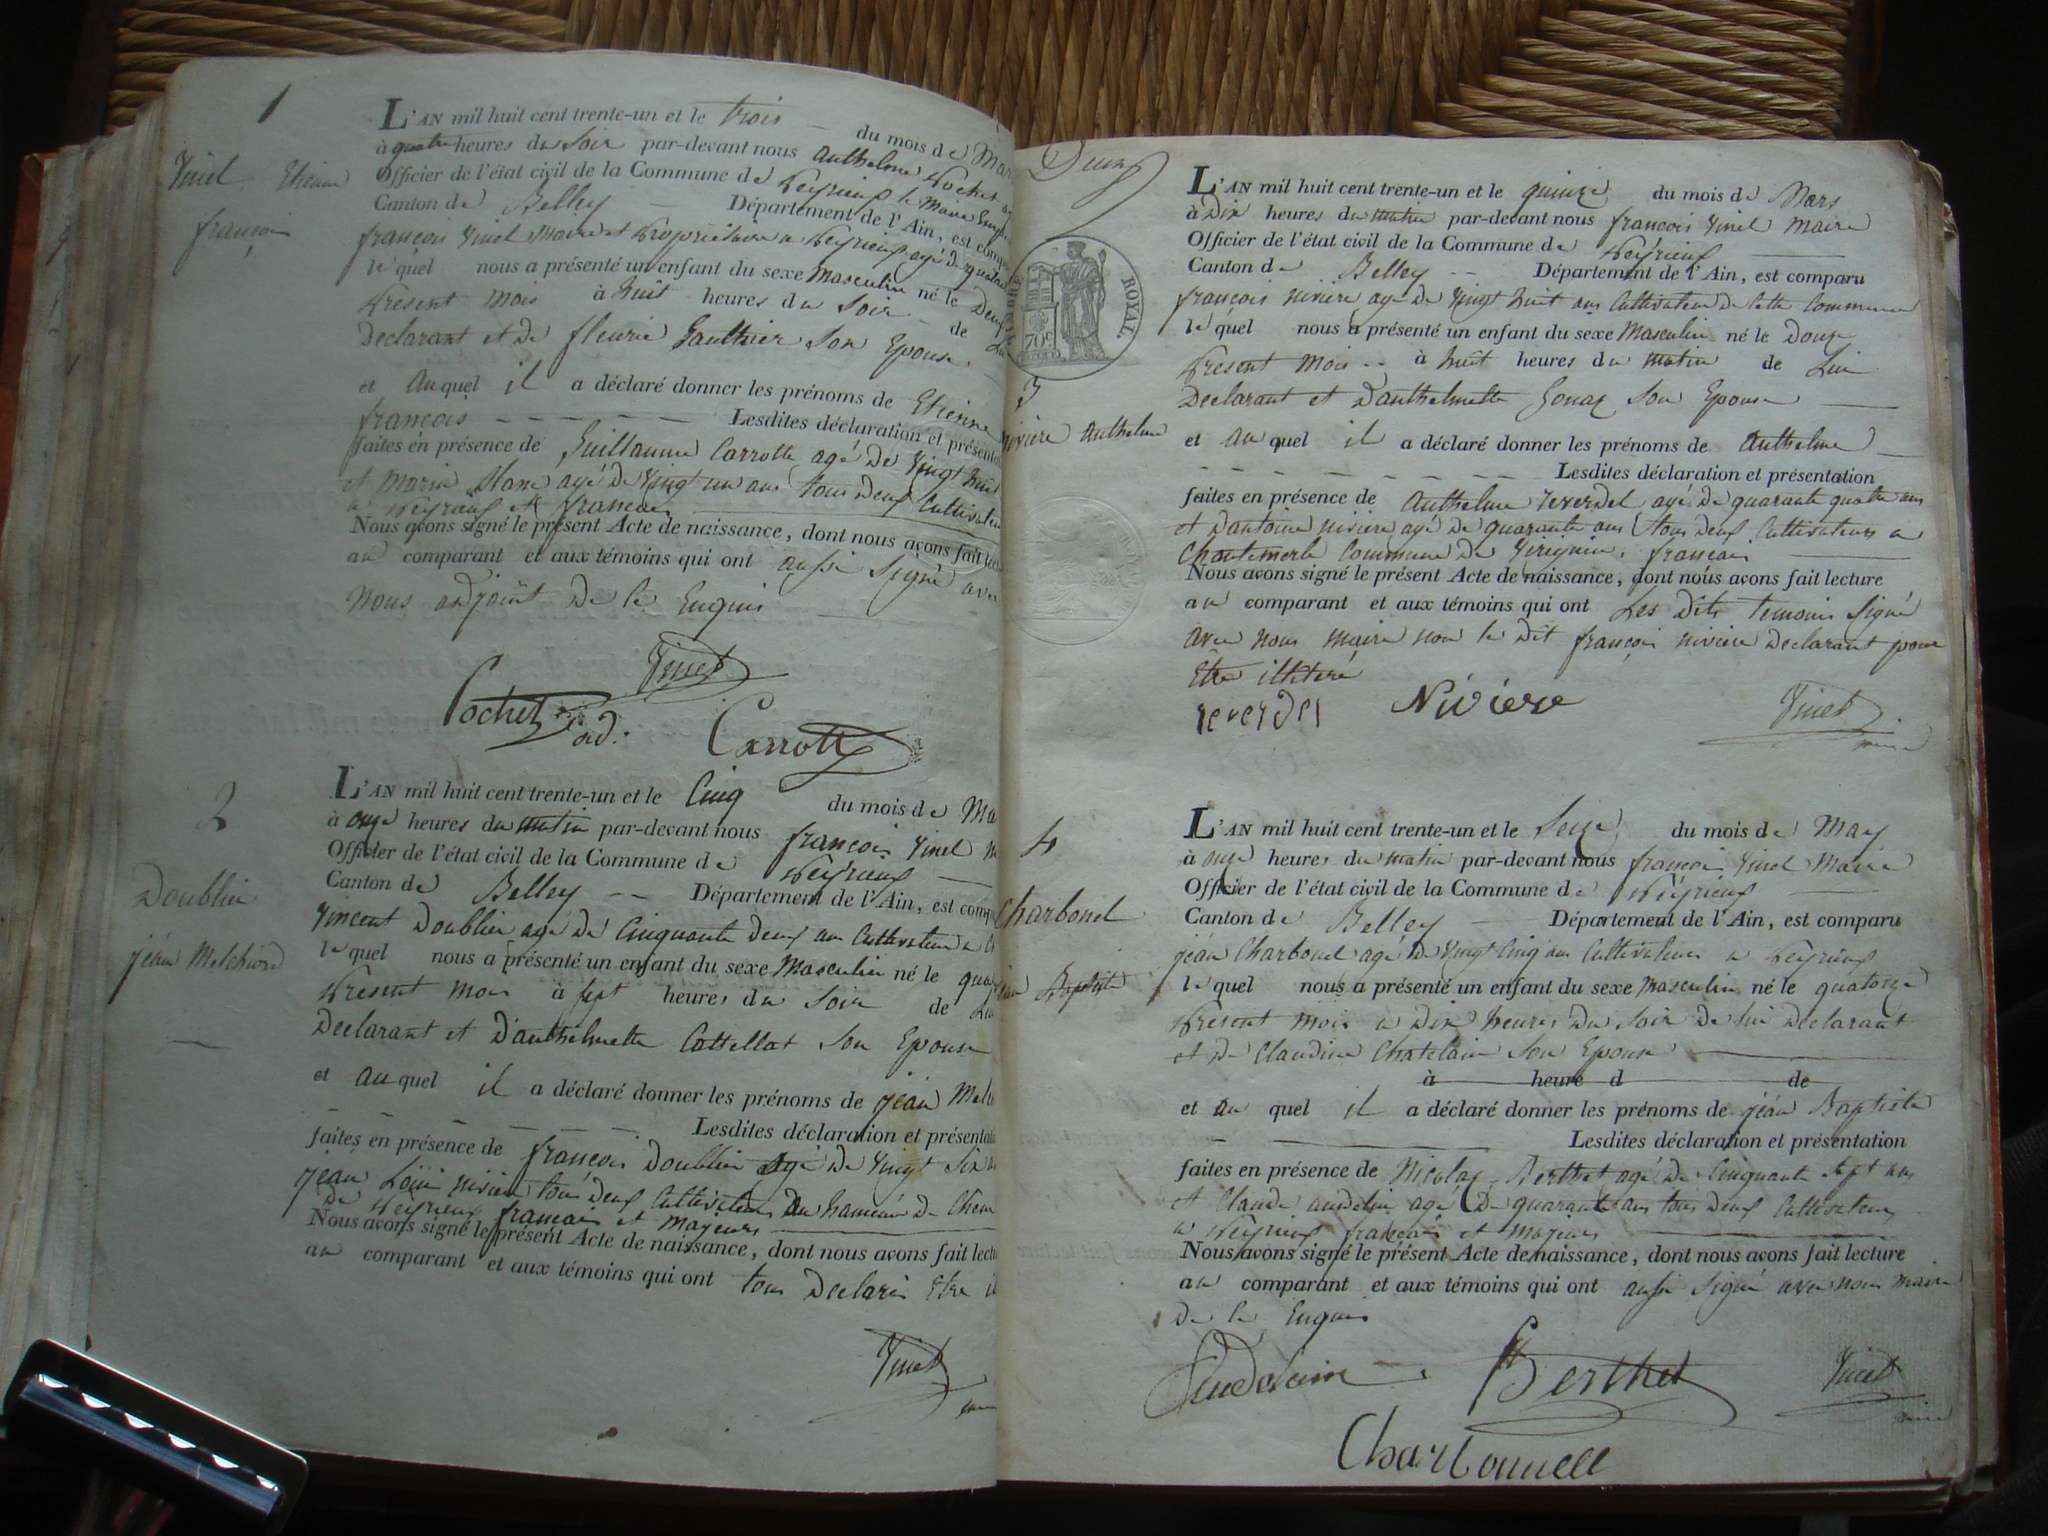 1
Vinet Etienne
françois
L'AN mil huit cent trente-un et le trois du mois de Mar
à quatre heures du Soir par-devant nous Anthelme Pochet
Officier de l'état civil de la Commune de Peyrieux le Maire Emp
Canton de Belley Département de l'Ain, est comp
françois Vinet Maire et Propriétaire a Peyrieux agé de
le quel nous a présenté un enfant du sexe Masculin né le Deux
Present mois à huit heures du Soir de Lui
Declarant et de fleurie Gauthier Son Epouse
et Au quel il a déclaré donner les prénoms de Etienne
françois Lesdites déclaration et présenta
faites en présence de Guillaume Carrotte agé de Vingt huit
et Marin agé de Vingt un ans tous Deux Cultivateu
a Peyrieux et francais
Nous avons signé le présent Acte de naissance, dont nous avons fait lectu
au comparant et aux témoins qui ont aussi Signé avec
Nous adjoint De ce Enquis
Vinet
Pochet ad.
Carrott
2
Doublier
jéan Melchiord
L'AN mil huit cent trente-un et le Cinq du mois de Ma
à onze heures du matin par-devant nous françois Vinet M
Officier de l'état civil de la Commune de Peyrieux
Canton de Belley Département de l'Ain, est comp
Vincent Doublier agé de Cinquante Deux ans Cultivateur a
le quel nous a présenté un enfant du sexe Masculin né le qua
Present mois à sept heures du Soir de Lui
Declarant et D'authelmette Cottellat Son Epouse
et Au quel il a déclaré donner les prénoms de jéan Melc
Lesdites déclaration et présenta
faites en présence de françois Doublier agé De Vingt Six
jéan Loüis nivière tous Deux Cultivateurs Du hameau De
De Peyrieux francais et Majeurs
Nous avons signé le présent Acte de naissance, dont nous avons fait lectu
au comparant et aux témoins qui ont tous Declarés Etre il
Vinet
Deux
ROYAL
70c
3
nivière Anthelme
L'AN mil huit cent trente-un et le quinze du mois de Mars
à Dix heures du matin par-devant nous françois Vinet Maire
Officier de l'état civil de la Commune de Peyrieux
Canton de Belley Département de l'Ain, est comparu
françois nivière agé de Vingt huit ans Cultivateur De Cette Commune
le quel nous a présenté un enfant du sexe Masculin né le Douze
Present Mois à huit heures du matin de Lui
Declarant et D'anthelmette Gonaz Son Epouse
et Au quel il a déclaré donner les prénoms de Anthelme
Lesdites déclaration et présentation
faites en présence de Anthelme reverdel agé de quarante quatre ans
et D'antoine nivière agé De quarante ans tous Deux Cultivateurs a
Chantemerle Commune De Virignin, francais
Nous avons signé le présent Acte de naissance, dont nous avons fait lecture
au comparant et aux témoins qui ont Les Dits temoins Signé
avec nous maire non le Dit françois nivière Declarant pour
Etre illiteré
reverdel Nivière Vinet
maire
4
Charbonel
jéan Baptiste
L'AN mil huit cent trente-un et le Seize du mois de May
à onze heures du matin par-devant nous françois Vinet Maire
Officier de l'état civil de la Commune de Peyrieux
Canton de Belley Département de l'Ain, est comparu
jéan Charbonel agé De Vingt Cinq ans Cultivateur a Peyrieux
le quel nous a présenté un enfant du sexe Masculin né le quatorze
Present Mois a Dix heures Du Soir De lui Declarant
et De Claudine Chatelain Son Epouse
à heure d de
et Au quel il a déclaré donner les prénoms de jéan Baptiste
Lesdites déclaration et présentation
faites en présence de Nicolas Berthet agé De Cinquante Sept ans
et Claude agé De quarante ans tous Deux Cultivateurs
a Peyrieux francais et Majeurs
Nous avons signé le présent Acte de naissance, dont nous avons fait lecture
au comparant et aux témoins qui ont aussi Signé avec nous Maire
De ce Enquis
Berthet Vinet
maire
Charbonnell